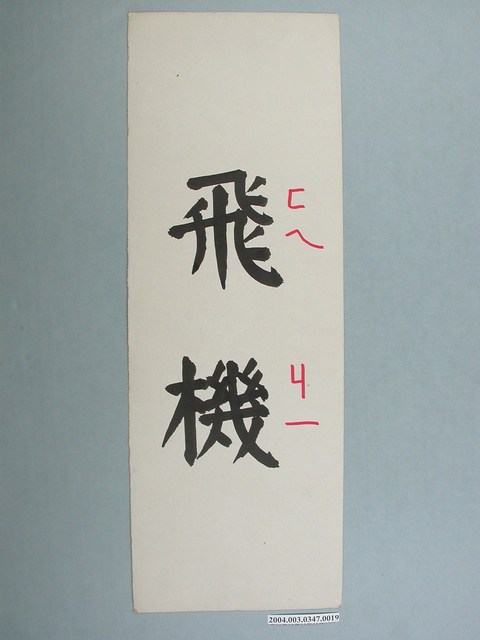 飛機
ㄈㄟ ㄐㄧ
2004.003.0347.0019